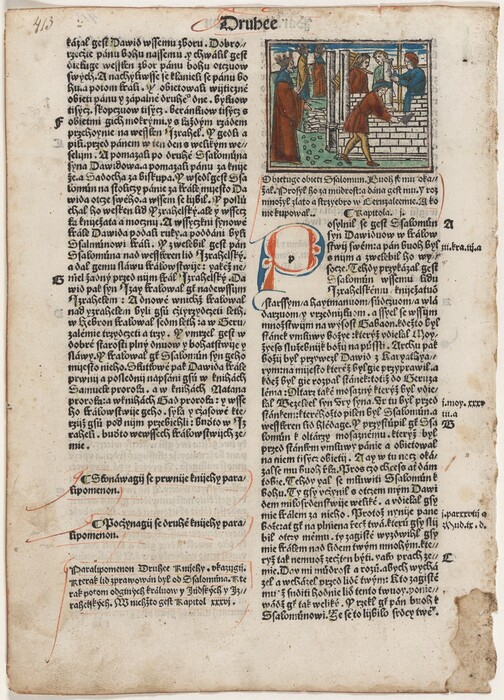 413
Druhee
kázal gest Dawid wssemu zboru. Dobro-
rzeczte pánu bohu nassemu. y chwálil gest
wessken zbor pána boha otczuow
swých. A nachyliwsse se klanieli se pánu bo
hu. a potom králi. Y obietowali wijtiezné
obieti pánu y zápalné druhé dne. bykuow
tisycz. skopczuow tisycz. beránkuow tisycz s
obietmi gich mokrymi. y s každým rzádem
F
przehoynie na wessken Izrahel. Y gedli a
pili przed pánem w ten den s welikým we-
selim. A pomazali po druhé Ssalomúna
syna Dawidowa. a pomazali pánu za kniez
že. a Sadocha za biskupa. Y wsedl gest Ssa
lomún na stoliczy pánie za krále mijesto Da
wida otcze swého. a wssem se lijbil. Y posu
chal ho wesken lid Izrahelský. ale y wssecz
ka kniežata a moczni. A wssyczkni synowé
krále Dawida poddali ruky. a poddáni byli
Ssalomúnowi králi. Y zwelebil gest pán
Ssalomúna nad wesskeren lid Izrahelský.
a dal gemu sláwu králowstwije: yakéž ne-
G
miel žádný przed nim král Izrahelský. Da
wid pak syn Izay kralowal gest nade wssijm
Izrahelem: A dnowé w nichž kralowal
nad Izrahelem byli gsú cztyrzydceti leth.
w Hebron kralowal sedm leth. a w Geru-
zalemie trzydceti a trzy. Y umrzel gest w
dobré starosti plný dnuow y bohatstwije y
sláwy. Y kralowal gest Ssalomún syn geho
mijesto nieho. Skutkowé pak Dawida krále
prwnij a poslednij napsáni gsú w knihách
Samuele proroka. a w knihách Natana
proroka: a w knihách Gad proroka: y wsse
ho králowstwije geho. syla y czasowé kte-
rzijž gsú pod nijm przebiehli: budto w Iz
raheli. budto w czwssech králowstwijch ze
mie.
Skonáwagij se prwnije knijehy para-
lipomenon.
Poczynagij se druhé knijehy para-
lipomenon.
Paralipomenon Druhee Knijehy. okazugij.
Kterak lid zprawowán byl od Ssalomúna. Kte
rak potom od giných králuow y Judských y Iz-
rahelských. W nichžto gest Kapitol xxxvj.
Obietuge obieti Ssalomún. Buoh se mu oka-
zal. Prosyl ho za múdrost: a dána gest mu. y roz
množyl zlato a strzyebro w Geruzalemie. A ko
nie kupowal.
Kapitola. j.
p
Posylnil se gest Ssalomún
A
syn Dawiduow w králow
stwij swém: a pán buoh byl
iij.krá.iij.a
s nijm a zwelebil ho wy-
socze. Tehdy przykázal gest
Ssalomún wssemu lidu
Izrahelskému kniežatuo
starssym. a haytmanuom. súdczuom. a wla
darzuom y vrzednijkuom. a ssyel se wssym
množstwijm na wysost Gabaon. kdežto byl
stánek vmluwy božie: kterýž vdielal Moy-
žyess služebnijk božij na pússti. Archu pak
božij byl przywezl Dawid z Karyathya-
rym: na mijesto kteréž byl gie przyprawil. a
kdež byl gie rozpal stánek: totiž do Geruza
léma: Oltarz také mosazný kterýž byl vdie
i.moy. xxxv
lal Bezeleel syn Hry syna. Hur tu byl przed
iij.a
stánkem: kteréhožto pilen byl Ssalomún. a
B
wesskeren lid hledage. Y przystúpil gest Ssa
lomún k oltarzy mosaznému. kterýž byl
przed stánkem vmluwy pánie a obietowal
na niem tisycz obietij. A ay w tu nocz oká-
zal se mu buoh rzka. Pros czo chcess ať dám
tobie. Tehdy rzal se mluwiti Ssalomún k
bohu. Ty gsy vczynil s otczem mým Dawi
dem milosrdenstwije weliké. a vdielal gsy
mie králem za nieho. Protož nynije pane
bože: ať gest naplniena rzecz twá. kterú gsy slij
j.parxxviij
bil otczy mému. ty zagisté wyzdwihl gsy
mie králem nad lidem twým mnohým. kte-
rýž tak nemuož zecten býti. yako prach ze-
mie. Day mi múdrost a rozum. abych wychá
C
zel a wcházel przed lidé twým: Kto zagisté
muož súditi hodnie lid tento twuoy. ponie-
wádž gest tak weliké. Y rzekl gest pán buoh k
Ssalomúnowi. Že se to lijbilo srdcy twé